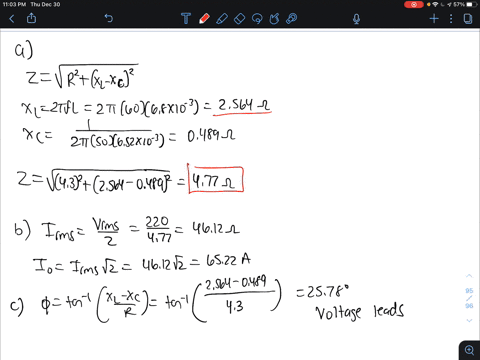 11:03 PM Thu Dec 30
57%
a)
Z = √(R² + (X_L - X_C)²)
X_L = 2πfL = 2π(60)(6.8×10⁻³) = 2.564 Ω
X_C = 1/(2π(50)(6.52×10⁻³)) = 0.489 Ω
Z = √((4.3)² + (2.564 - 0.489)²) = 4.77 Ω
b) Irms = Vrms/2 = 220/4.77 = 46.12 Ω
I₀ = Irms√2 = 46.12√2 = 65.22 A
c) φ = tan⁻¹(X_L - X_C/R) = tan⁻¹(2.564 - 0.489/4.3) = 25.78°
Voltage leads
95
96